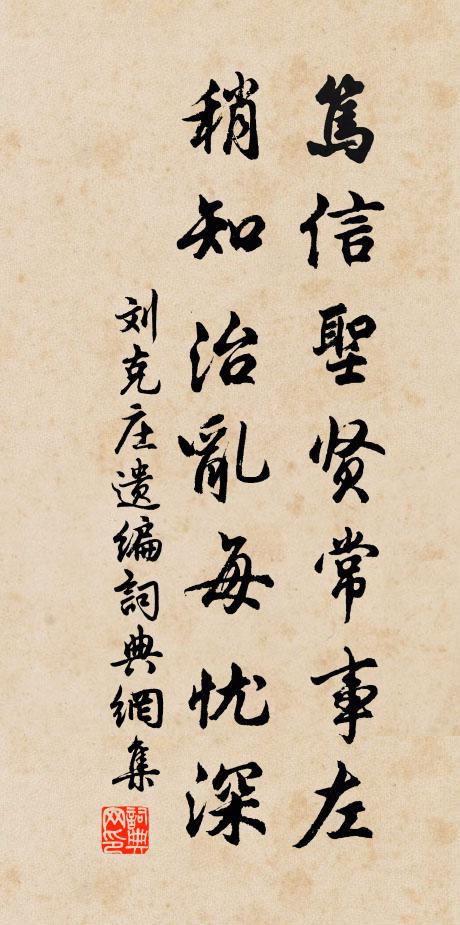 篤信聖贤常事左
稍知治亂每忧深
刘克庄遗编詞典網集
詞典網印